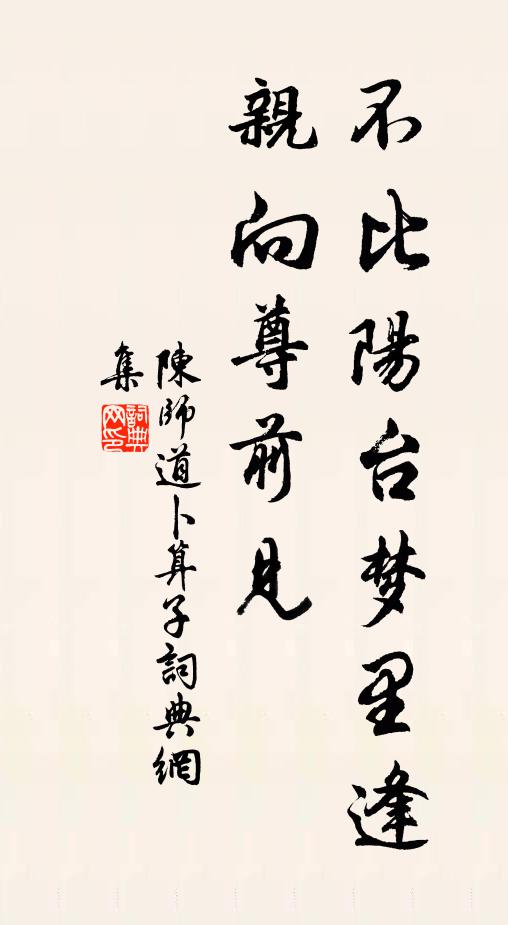 不比陽台梦里逢
親向尊前見
陳師道卜算子詞典網
集
詞典
网印